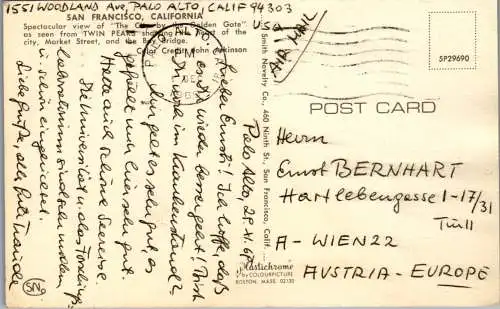 1551 WOODLAND Ave, PALO ALTO, CALIF 94303
USA
SAN FRANCISCO, CALIFORNIA
Spectacular view of "The City by the Golden Gate"
as seen from TWIN PEAKS showing
city, Market Street, and the Bay Bridge.
Color Credit: John Atkinson
AIR MAIL
PM
SP29690
POST CARD
Smith Novelty Co., 460 Ninth St., San Francisco, Calif.
Plastichrome
by COLOURPICTURE
BOSTON, MASS. 02130
Palo Alto, 29.XI.67
Lieber Ernst! Ich hoffe, daß
es dir wieder besser geht! Bist
Du noch im Krankenstand?
Uns geht es sehr gut, es
gefällt uns hier sehr gut.
Hatte eine schöne Seereise.
Die Universität u. das Forschungs-
laboratorium sind sehr modern
u. schön eingerichtet.
Liebe Grüße, alles Gute Traude
SN9
Herrn
Ernst BERNHART
Hartlebengasse 1-17/31
Tür 11
A-WIEN 22
AUSTRIA-EUROPE